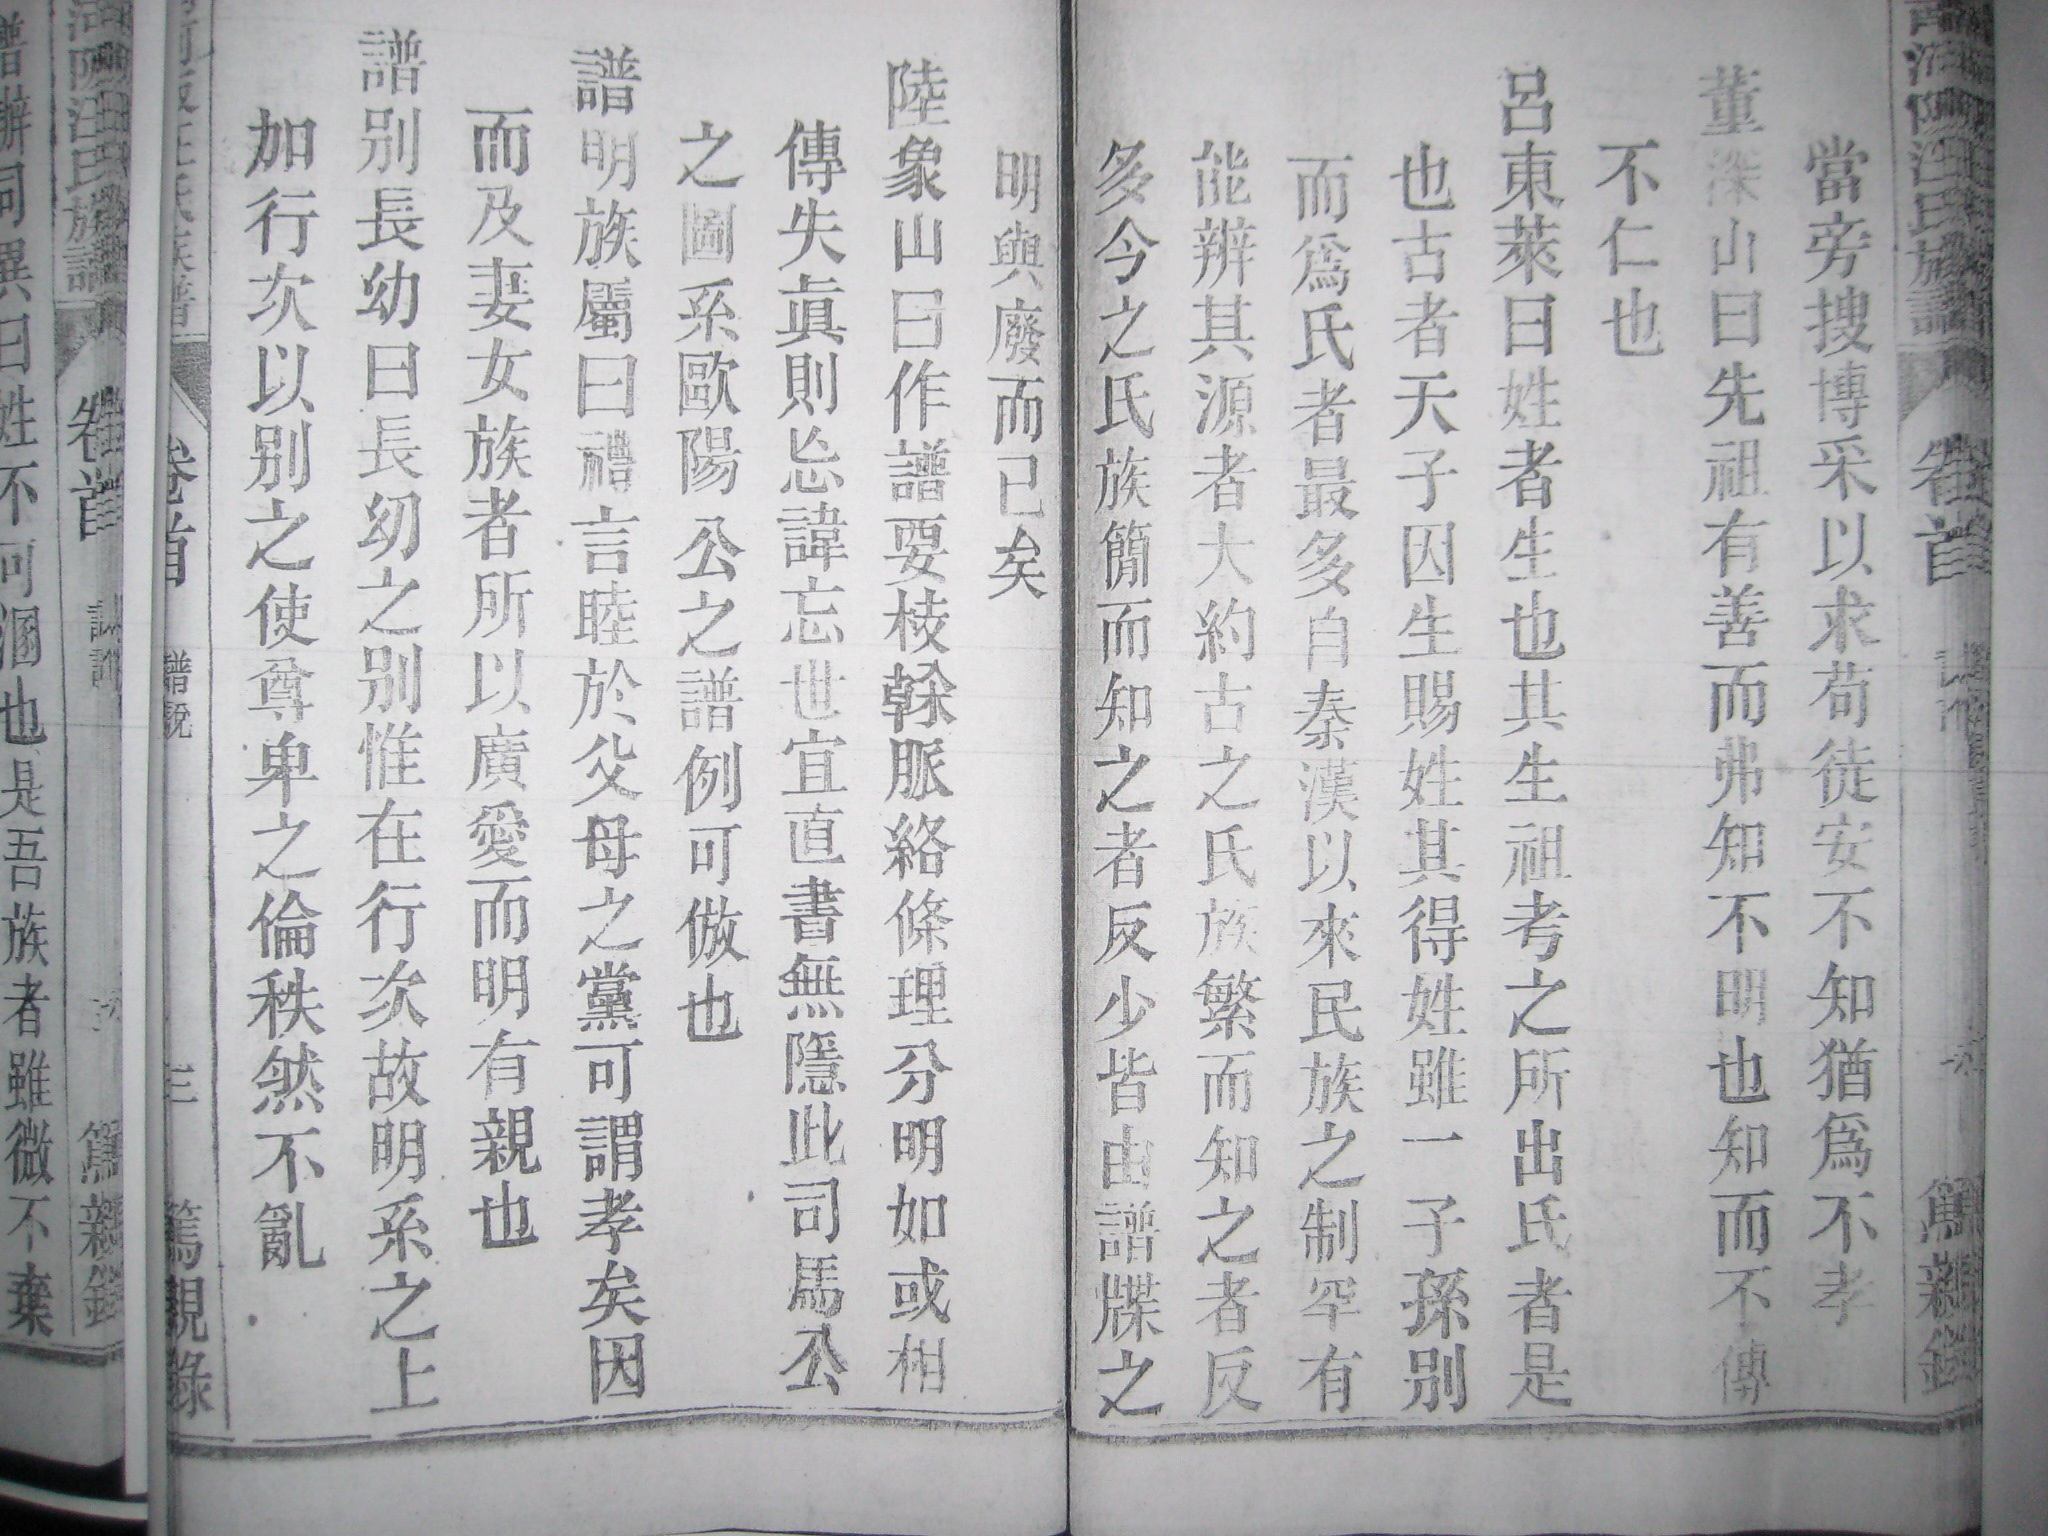 當旁搜博采以求苟徒安不知猶爲不孝
董深山曰先祖有善而弗知不明也知而不傳
不仁也
呂東萊曰姓者生也其生祖考之所出氏者是
也古者天子因生賜姓其得姓雖一子孫別
而爲氏者最多自秦漢以來民族之制罕有
能辨其源者大約古之氏族繁而知之者反
多今之氏族簡而知之者反少皆由譜牒之
明與廢而已矣
陸象山曰作譜要枝榦脈絡條理分明如或相
傳失眞則忘諱忘世宜直書無隱此司馬公
之圖系歐陽公之譜例可倣也
譜明族屬曰禮言睦於父母之黨可謂孝矣因
而及妻女族者所以廣愛而明有親也
譜別長幼曰長幼之別惟在行次故明系之上
加行次以別之使尊卑之倫秩然不亂
卷首 譜說 三 篤親錄
汪氏族譜 卷首 篤親錄
譜辨同異曰姓不可溷也是吾族者雖微不棄